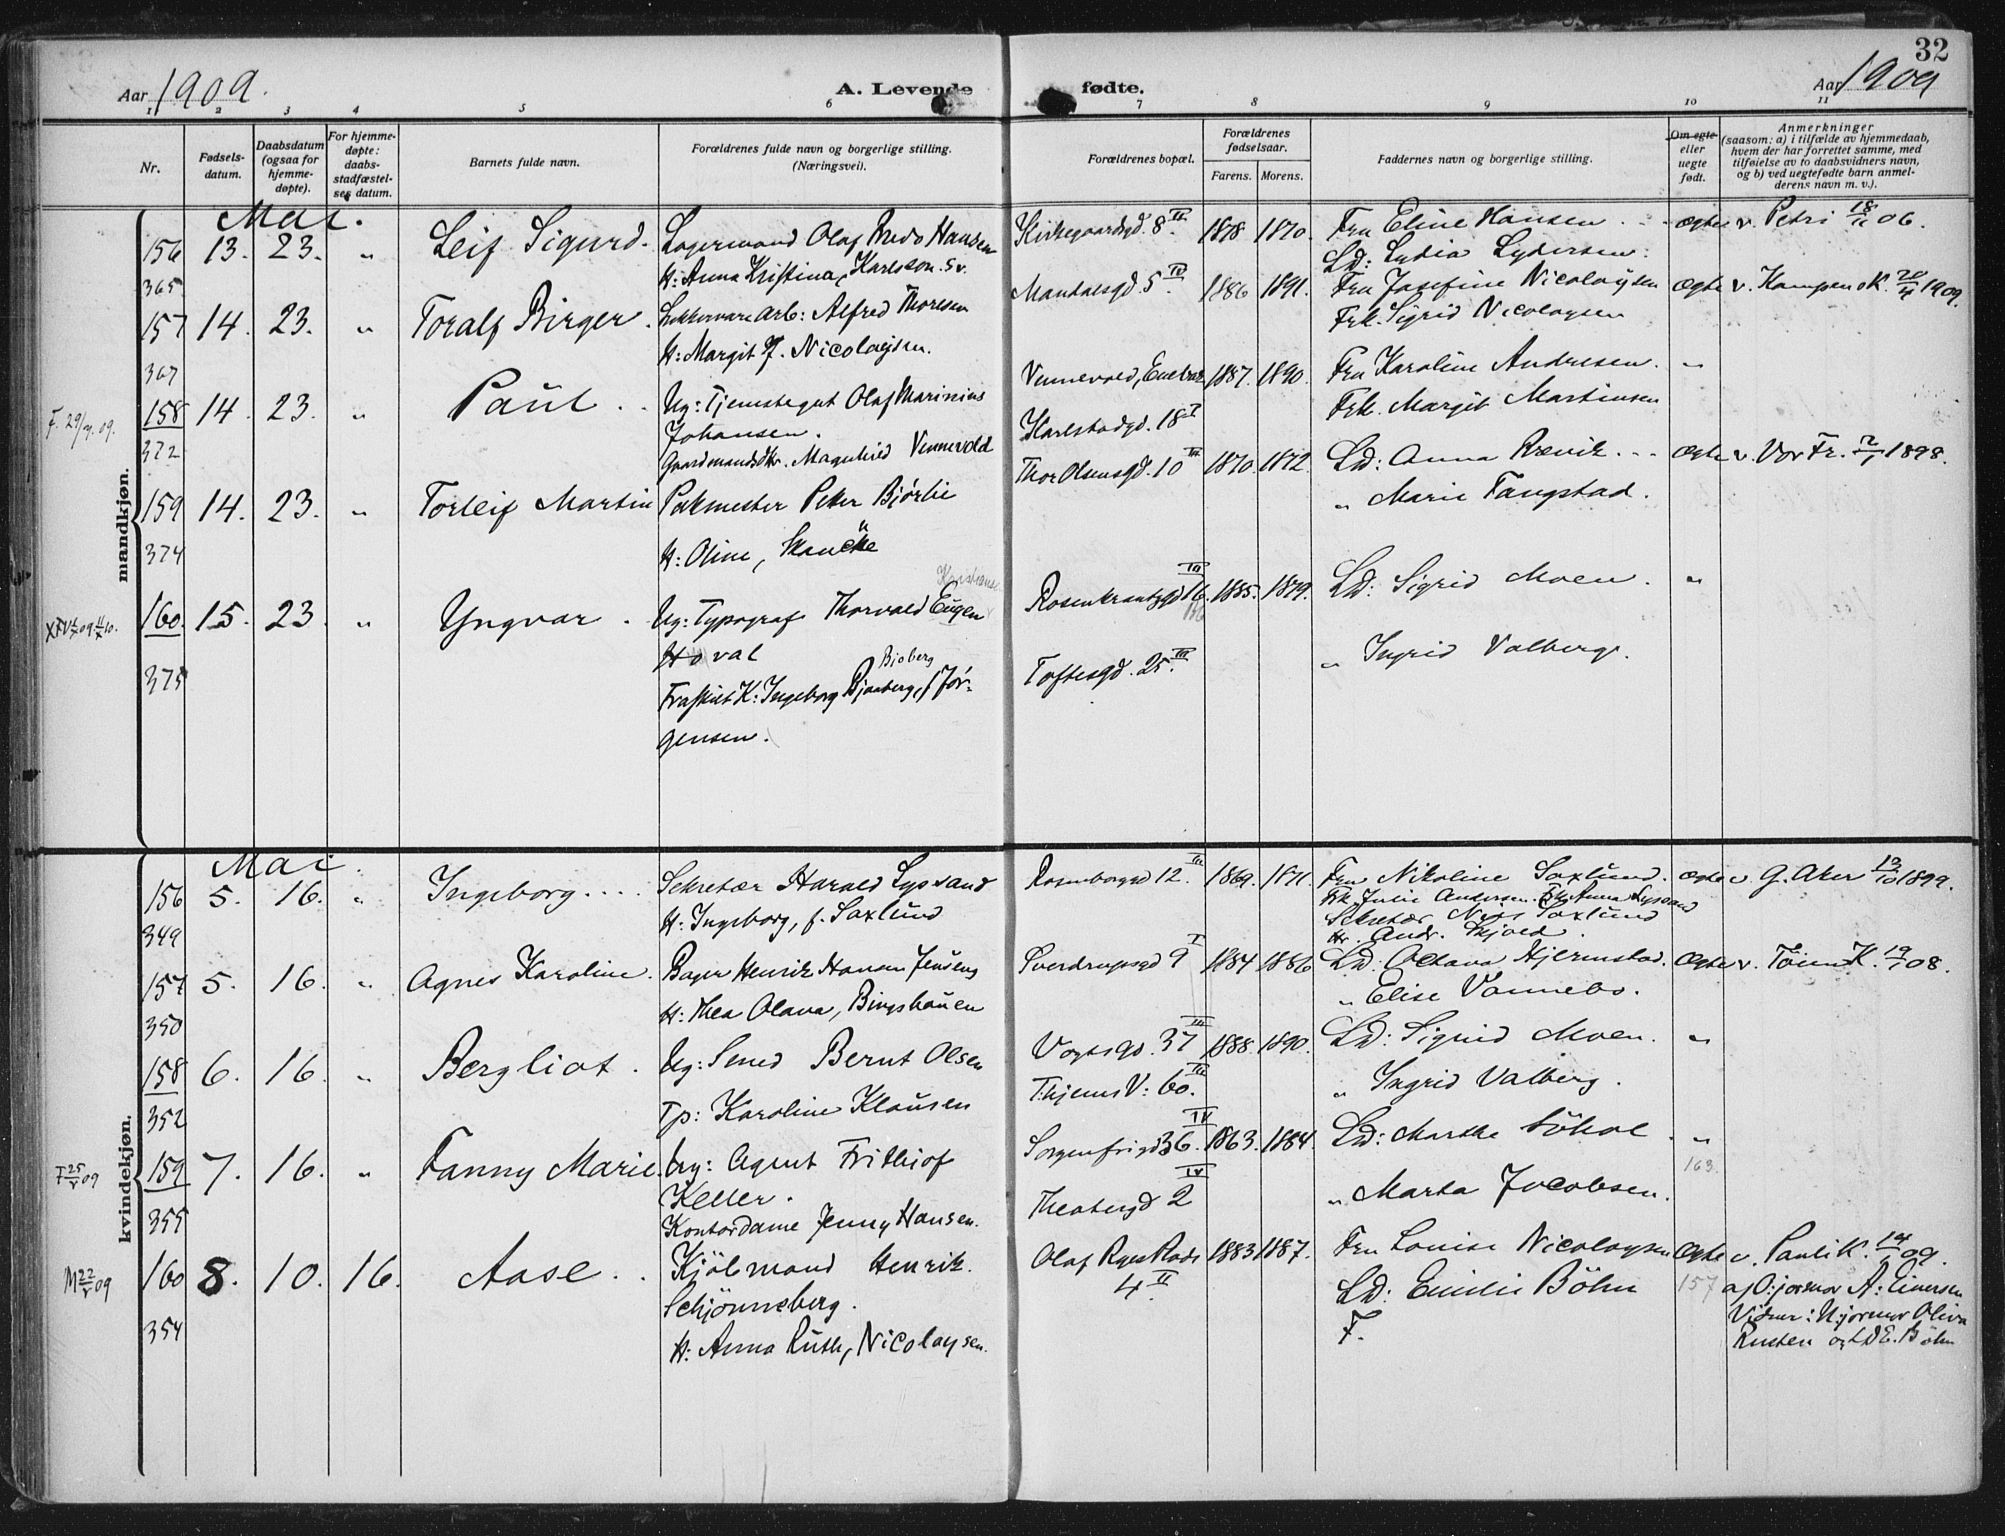 32
Aar 1909.
A. Levende fødte.
Aar 1909
1 2 3 4 5 6 7 8 9 10 11
Nr.
Fødsels-
datum.
Daabsdatum
(ogsaa for
hjemme-
døpte).
For hjemme-
døpte:
daabs-
stadfæstel-
ses datum.
Barnets fulde navn.
Forældrenes fulde navn og borgerlige stilling.
(Næringsvei).
Forældrenes bopæl.
Forældrenes
fødselsaar.
Farens. Morens.
Faddernes navn og borgerlige stilling.
Om egte
eller
uegte
født.
Anmerkninger
(saasom: a) i tilfælde av hjemmedaab,
hvem der har forrettet samme, med
tilføielse av to daabsvidners navn,
og b) ved uegtefødte barn anmel-
derens navn m. v.).
mandkjøn.
Mai.
156 13. 23. " Leif Sigurd. Lagermand Olaf Hansen Kirkegaardsgd. 8 II 1878 1870. Fru Eline Hansen egte v. Petri 18/11 06.
365 H: Anna Kristina, Karlsson. Sv. Ld: Lydia Lydersen.
157 14. 23. " Toralf Birger. Lukkervarearb: Alfred Thoresen Mandalsgd. 5 IV 1886 1891. Fru Josefine Nicolaysen egte v. Kampen K. 20/4 1909.
367 H: Margit J. Nicolaysen. Frk. Sigrid Nicolaysen
F. 29/ 09. 158 14. 23. " Paul. Ug: Tjenestegut Olaf Marinius Vennevold, Enebak 1887. 1890. Fru Karoline Andresen. "
Johansen. Karlstadgd. 18 I Frk. Margit Martinsen
372 Gaardmandsdtr. Magnhild Vennevold
159 14. 23. " Torleif Martin Pakmester Peter Bjørlie Thor Olsensgd. 10 III 1870. 1872. Ld: Anna Rævik egte v. Vor Fr. 1898.
374 H: Oline, Skancke " Marie Fangstad.
160. 15. 23. " Yngvar. Ug: Typograf Thorvald Eugen Kristian Rosenkrantzgd 16 III 1885. 1879. Ld: Sigrid Moen. "
Hoval Toftesgd. 25. III " Ingrid Valberg.
375 Fraskilt K: Ingeborg Bjoberg, f Jør-
gensen.
kvindekjøn.
Mai.
156 5. 16. " Ingeborg. Sekretær Harald Lyssand Rosenborggd 12. III 1869. 1871. Fru Nikoline Saxlund. egte v. G. Aker 13/10 1899.
349 H: Ingeborg, f. Saxlund Frk. Julie Andersen. Frk Anna Lyssand
Sekretær Nils Saxlund
Hr. Andr. Skjold.
157 5. 16. " Agnes Karoline. Bager Henrik Hansen Jensen Sverdrupsgd 9 I 1884 1886 Ld: Octava Hjermstad. egte v. Tøien K. 19/1 08.
350 H: Thea Olava, Bingshausen " Elise Vannebo.
158 6. 16. " Bergliot. Ug: Smed Bernt Olsen Vogtsgd. 37 III 1888. 1890. Ld: Sigrid Moen. "
352 Tp: Karoline Klausen Thjems V: 60. III " Ingrid Valberg.
F 25/V 09 159 7. 16. " Fanny Marie. Ug: Agent Frithiof Sorgenfrigd 36. IV 1863. 1884. Ld: Marthe "
Keller. Theatergd 2 IV 163.
355 Kontordame Jenny Hansen. " Marta Jacobsen.
M 22/V 09 160 8. 10. 16. Aase. Kjølmand Henrik Olaf Ryes Plads 1883 1887. Fru Louise Nicolaysen egte v. Pauli K. 09.
Schjønneberg. 4. II Ld: Emilie Böhn 157 a) O:jormor A: Einersen
354 H: Anna Ruth, Nicolaysen. F. Vidner: Njormor Oliva
Rusten og Ld E. Böhn